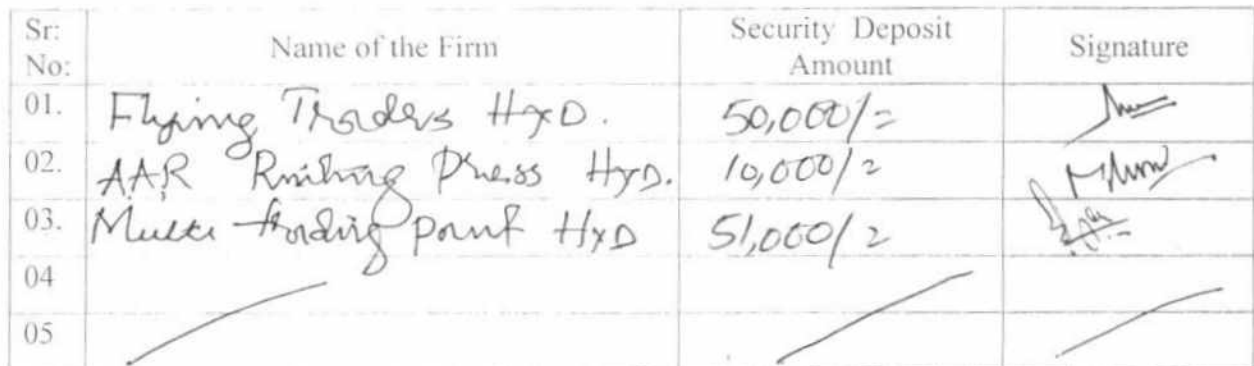 Sr: No: Name of the Firm Security Deposit Amount Signature
01. Flying Traders HYD. 50,000/=
02. A.A.R Printing Press HYD. 10,000/=
03. Multi trading point HYD 51,000/=
04
05